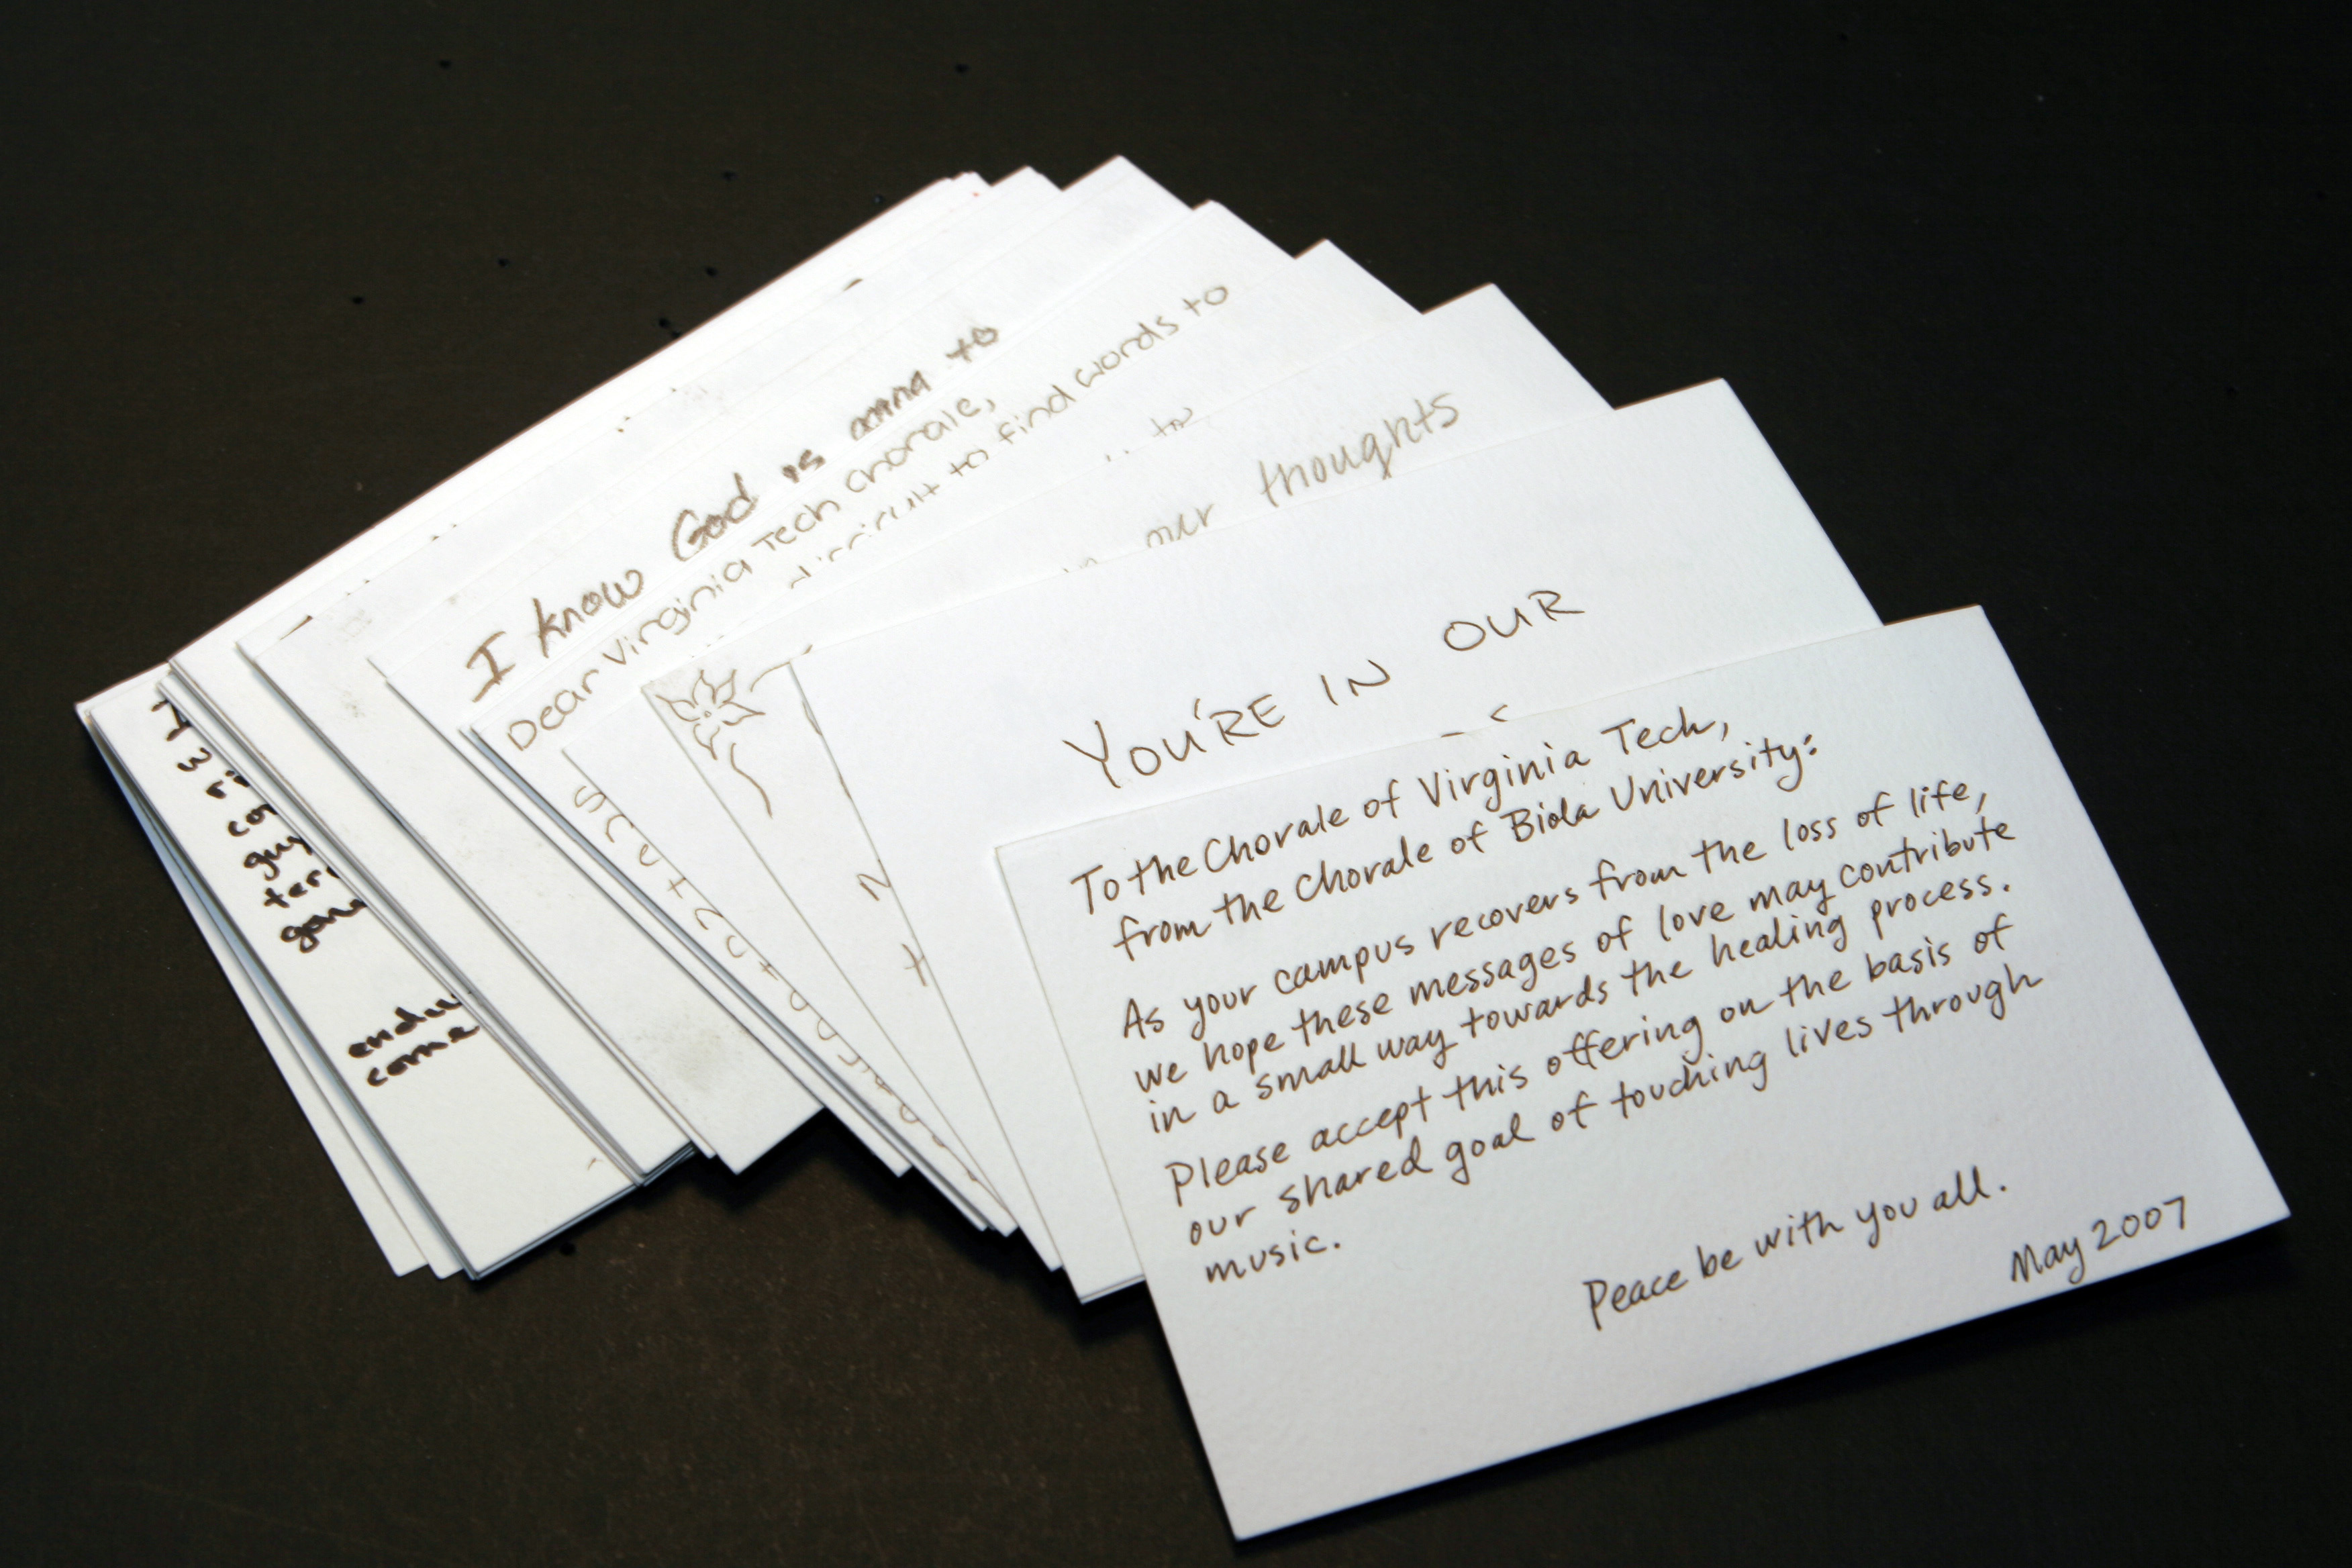 To the Chorale of Virginia Tech,
from the Chorale of Biola University:
As your campus recovers from the loss of life,
we hope these messages of love may contribute
in a small way towards the healing process.
Please accept this offering on the basis of
our shared goal of touching lives through
music.
Peace be with you all.
May 2007
YOU'RE IN OUR
our thoughts
Dear Virginia Tech chorale,
to find words to
I know God is to
come